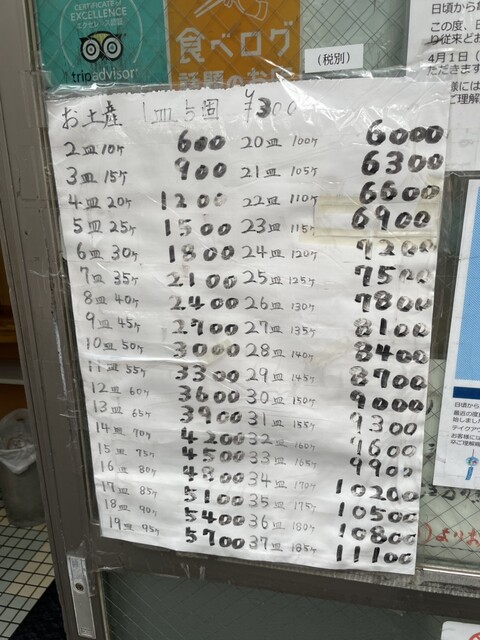 CERTIFICATE of
EXCELLENCE
エクセレンス認証
tripadvisor
食べログ
話題のお
(税別)
4月1日
ご理解
お土産 1皿5ヶ ¥300
2皿10ヶ 600
3皿15ヶ 900
4皿20ヶ 1200
5皿25ヶ 1500
6皿30ヶ 1800
7皿35ヶ 2100
8皿40ヶ 2400
9皿45ヶ 2700
10皿50ヶ 3000
11皿55ヶ 3300
12皿60ヶ 3600
13皿65ヶ 3900
14皿70ヶ 4200
15皿75ヶ 4500
16皿80ヶ 4800
17皿85ヶ 5100
18皿90ヶ 5400
19皿95ヶ 5700
20皿100ヶ 6000
21皿105ヶ 6300
22皿110ヶ 6600
23皿115ヶ 6900
24皿120ヶ 7200
25皿125ヶ 7500
26皿130ヶ 7800
27皿135ヶ 8100
28皿140ヶ 8400
29皿145ヶ 8700
30皿150ヶ 9000
31皿155ヶ 9300
32皿160ヶ 9600
33皿165ヶ 9900
34皿170ヶ 10200
35皿175ヶ 10500
36皿180ヶ 10800
37皿185ヶ 11100
日頃から
最近の
始しました
テイクアウ
お客様には
ご理解